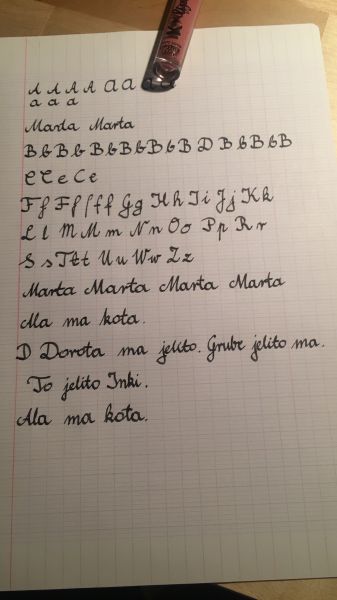 A A A A a a
a a a
Marta Marta
B b B b B b B b B b B D B b B b B
C C e C e
F f F f f f f G g H h I i J j K k
L l M M m N n O o P p R r
S s T t t U u W w Z z
Marta Marta Marta Marta
Ala ma kota.
D Dorota ma jelito. Grube jelito ma.
To jelito Inki.
Ala ma kota.